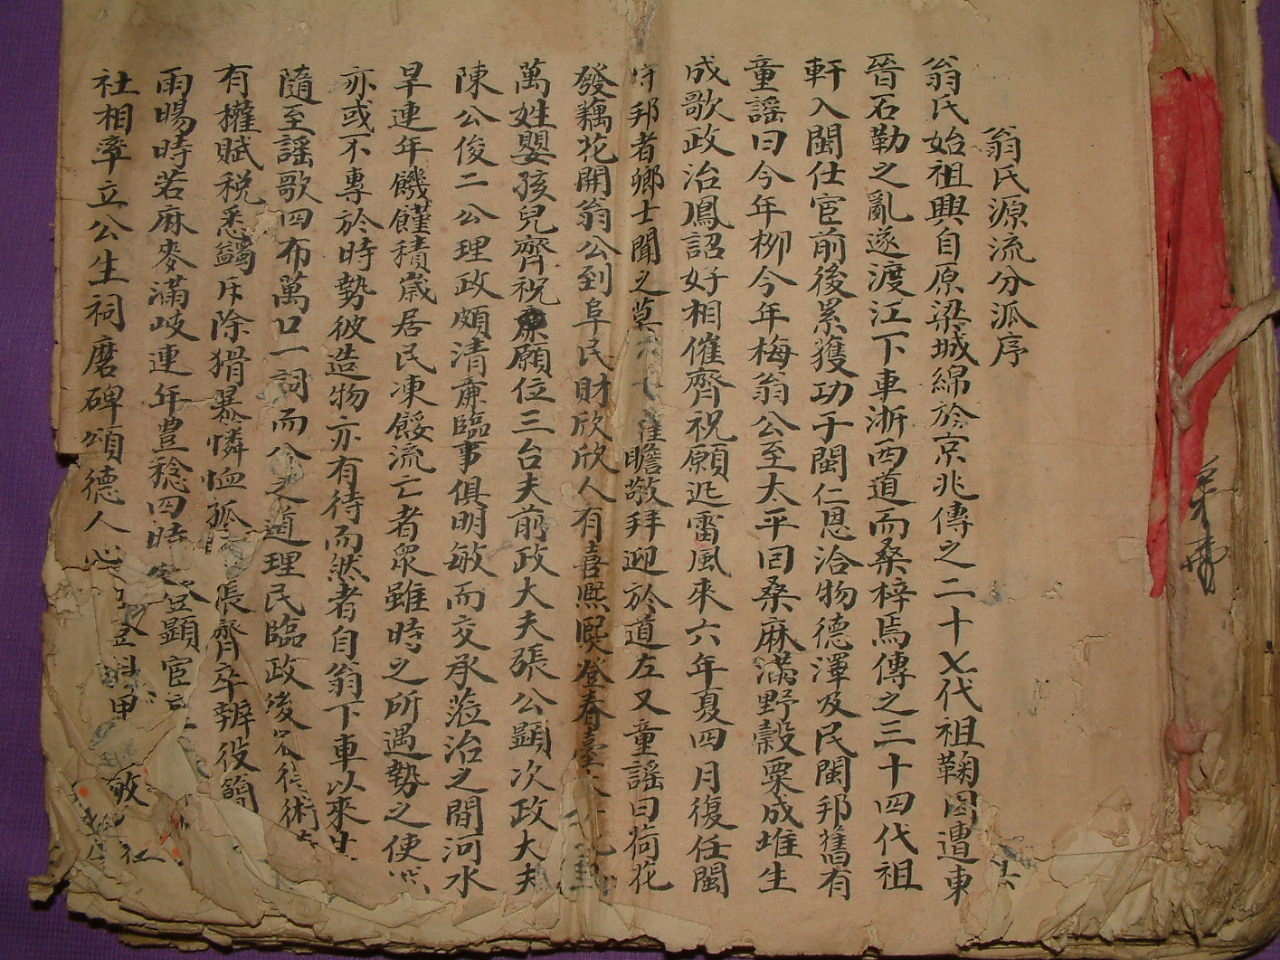 翁氏源流分派序
翁氏始祖興自原梁城綿於京兆傳之二十七代祖鞠因遭東
晉石勒之亂遂渡江下車浙西道而桑梓焉傳之三十四代祖
軒入閩仕宦前後累獲功于閩仁恩洽物德渾及民閩邦舊有
童謠曰今年柳今年梅翁公至太平囘桑麻滿野穀粟成堆生
成歌政治鳳詔好相催齊祝願迅雷風來六年夏四月復任閩
邦者鄉士聞之莫不 瞻敬拜迎於道左又童謠曰荷花
發藕花開翁公到阜民財欣欣人有喜熈熈登春臺
萬姓嬰孩兒齊祝願位三台夫前政大夫張公顕次政大夫
陳公俊二公理政頗清肅臨事俱明敏而交承蒞治之間河水
旱連年饑饉積歲居民凍餒流亡者衆雖時之所遇勢之使然
亦或不專於時勢彼造物亦有待而然者自翁下車以來
隨至謠歌四布萬口一詞而公之道理民臨政後 術
有權賦税悉蠲斥除猾暴憐恤孤 張齊卒辦役
雨暘時若麻麥滿岐連年豊稔四時 顕宦
社相率立公生祠磨碑頌德人心 登科甲 敬